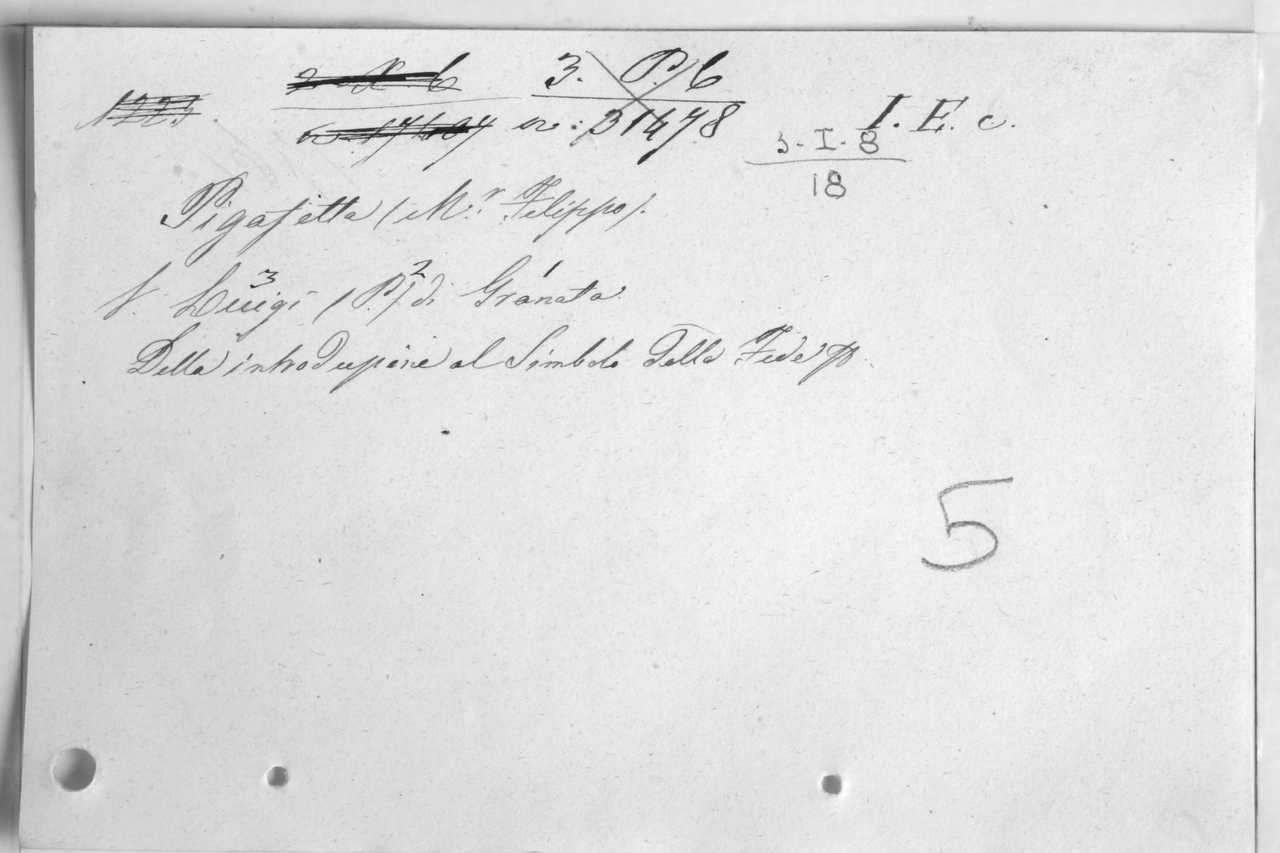 3. P. 6
n: 31478
I. E. c.
3. I. 8
18
Pigafetta (M.r Filippo).
V. Luigi (P.) di Granata
3 2 1
Della introduzione al Simbolo della Fede
5